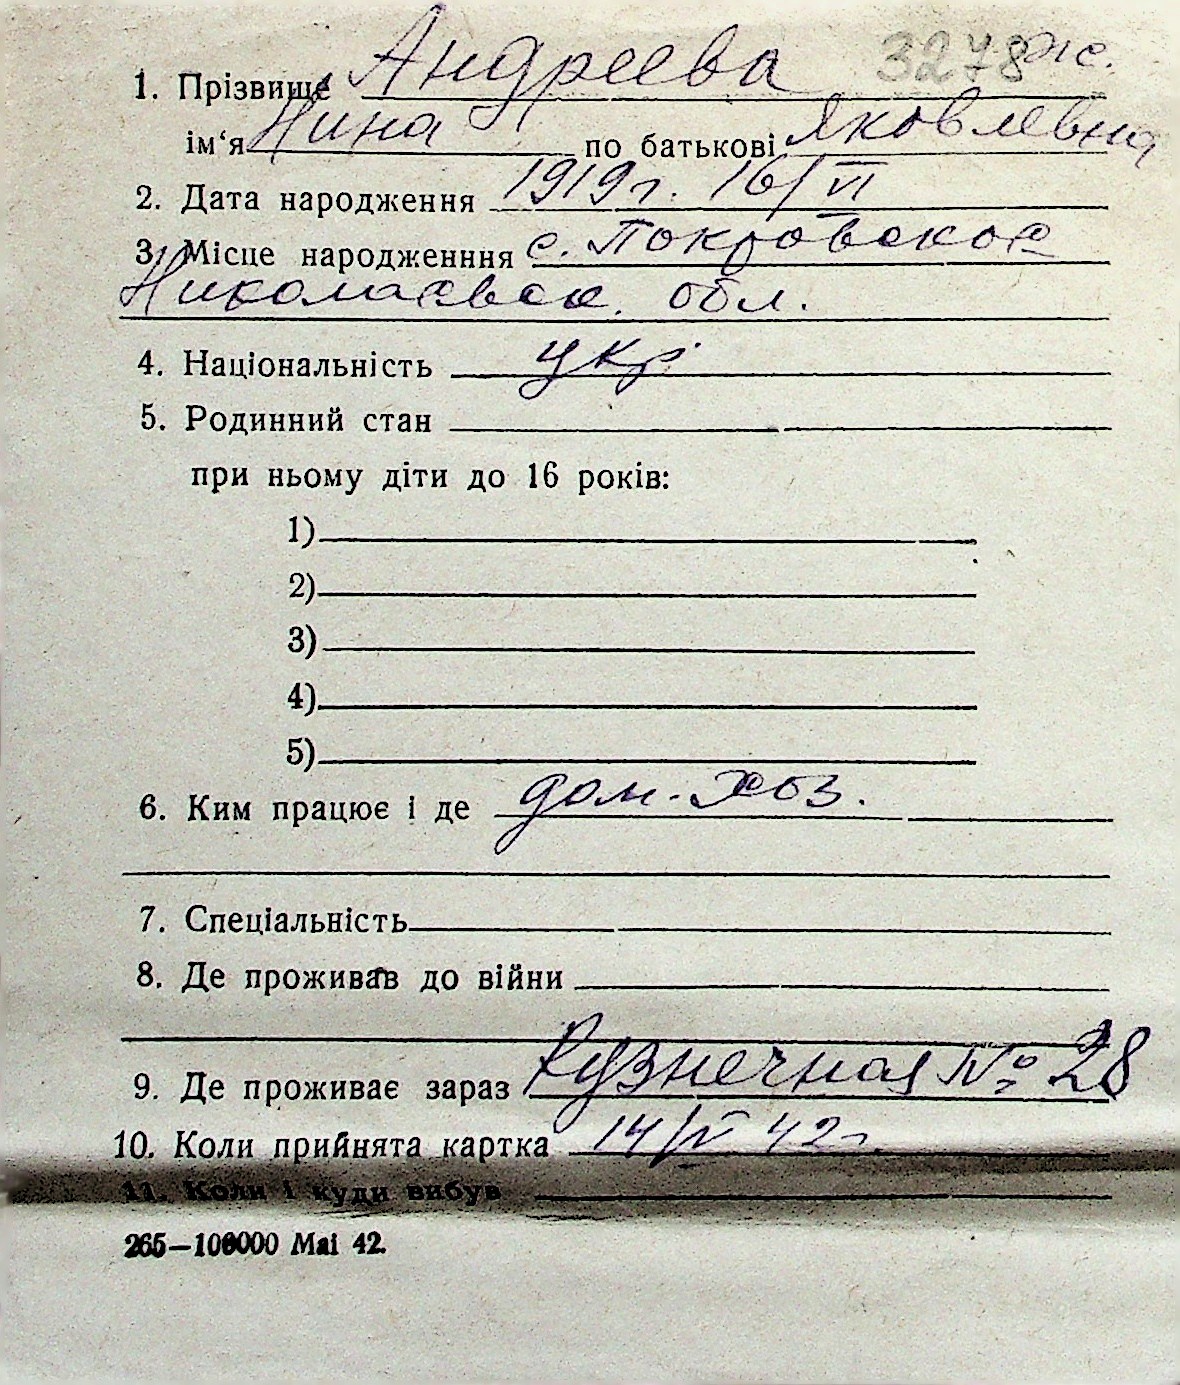 3278 ж.
1. Прізвище Андреева
ім‘я Нина по батькові Яковлевна
2. Дата народження 1919 г. 16/VI
3. Місце народженння с. Покровское
Николаевск. обл.
4. Національність укр.
5. Родинний стан
при ньому діти до 16 років:
1)
2)
3)
4)
5)
6. Ким працює і де дом-хоз.
7. Спеціальність
8. Де проживав до війни
9. Де проживає зараз Кузнечная № 28
10. Коли прийнята картка 14/IV 42 г.
11. Коли і куди вибув
265—100000 Mai 42.